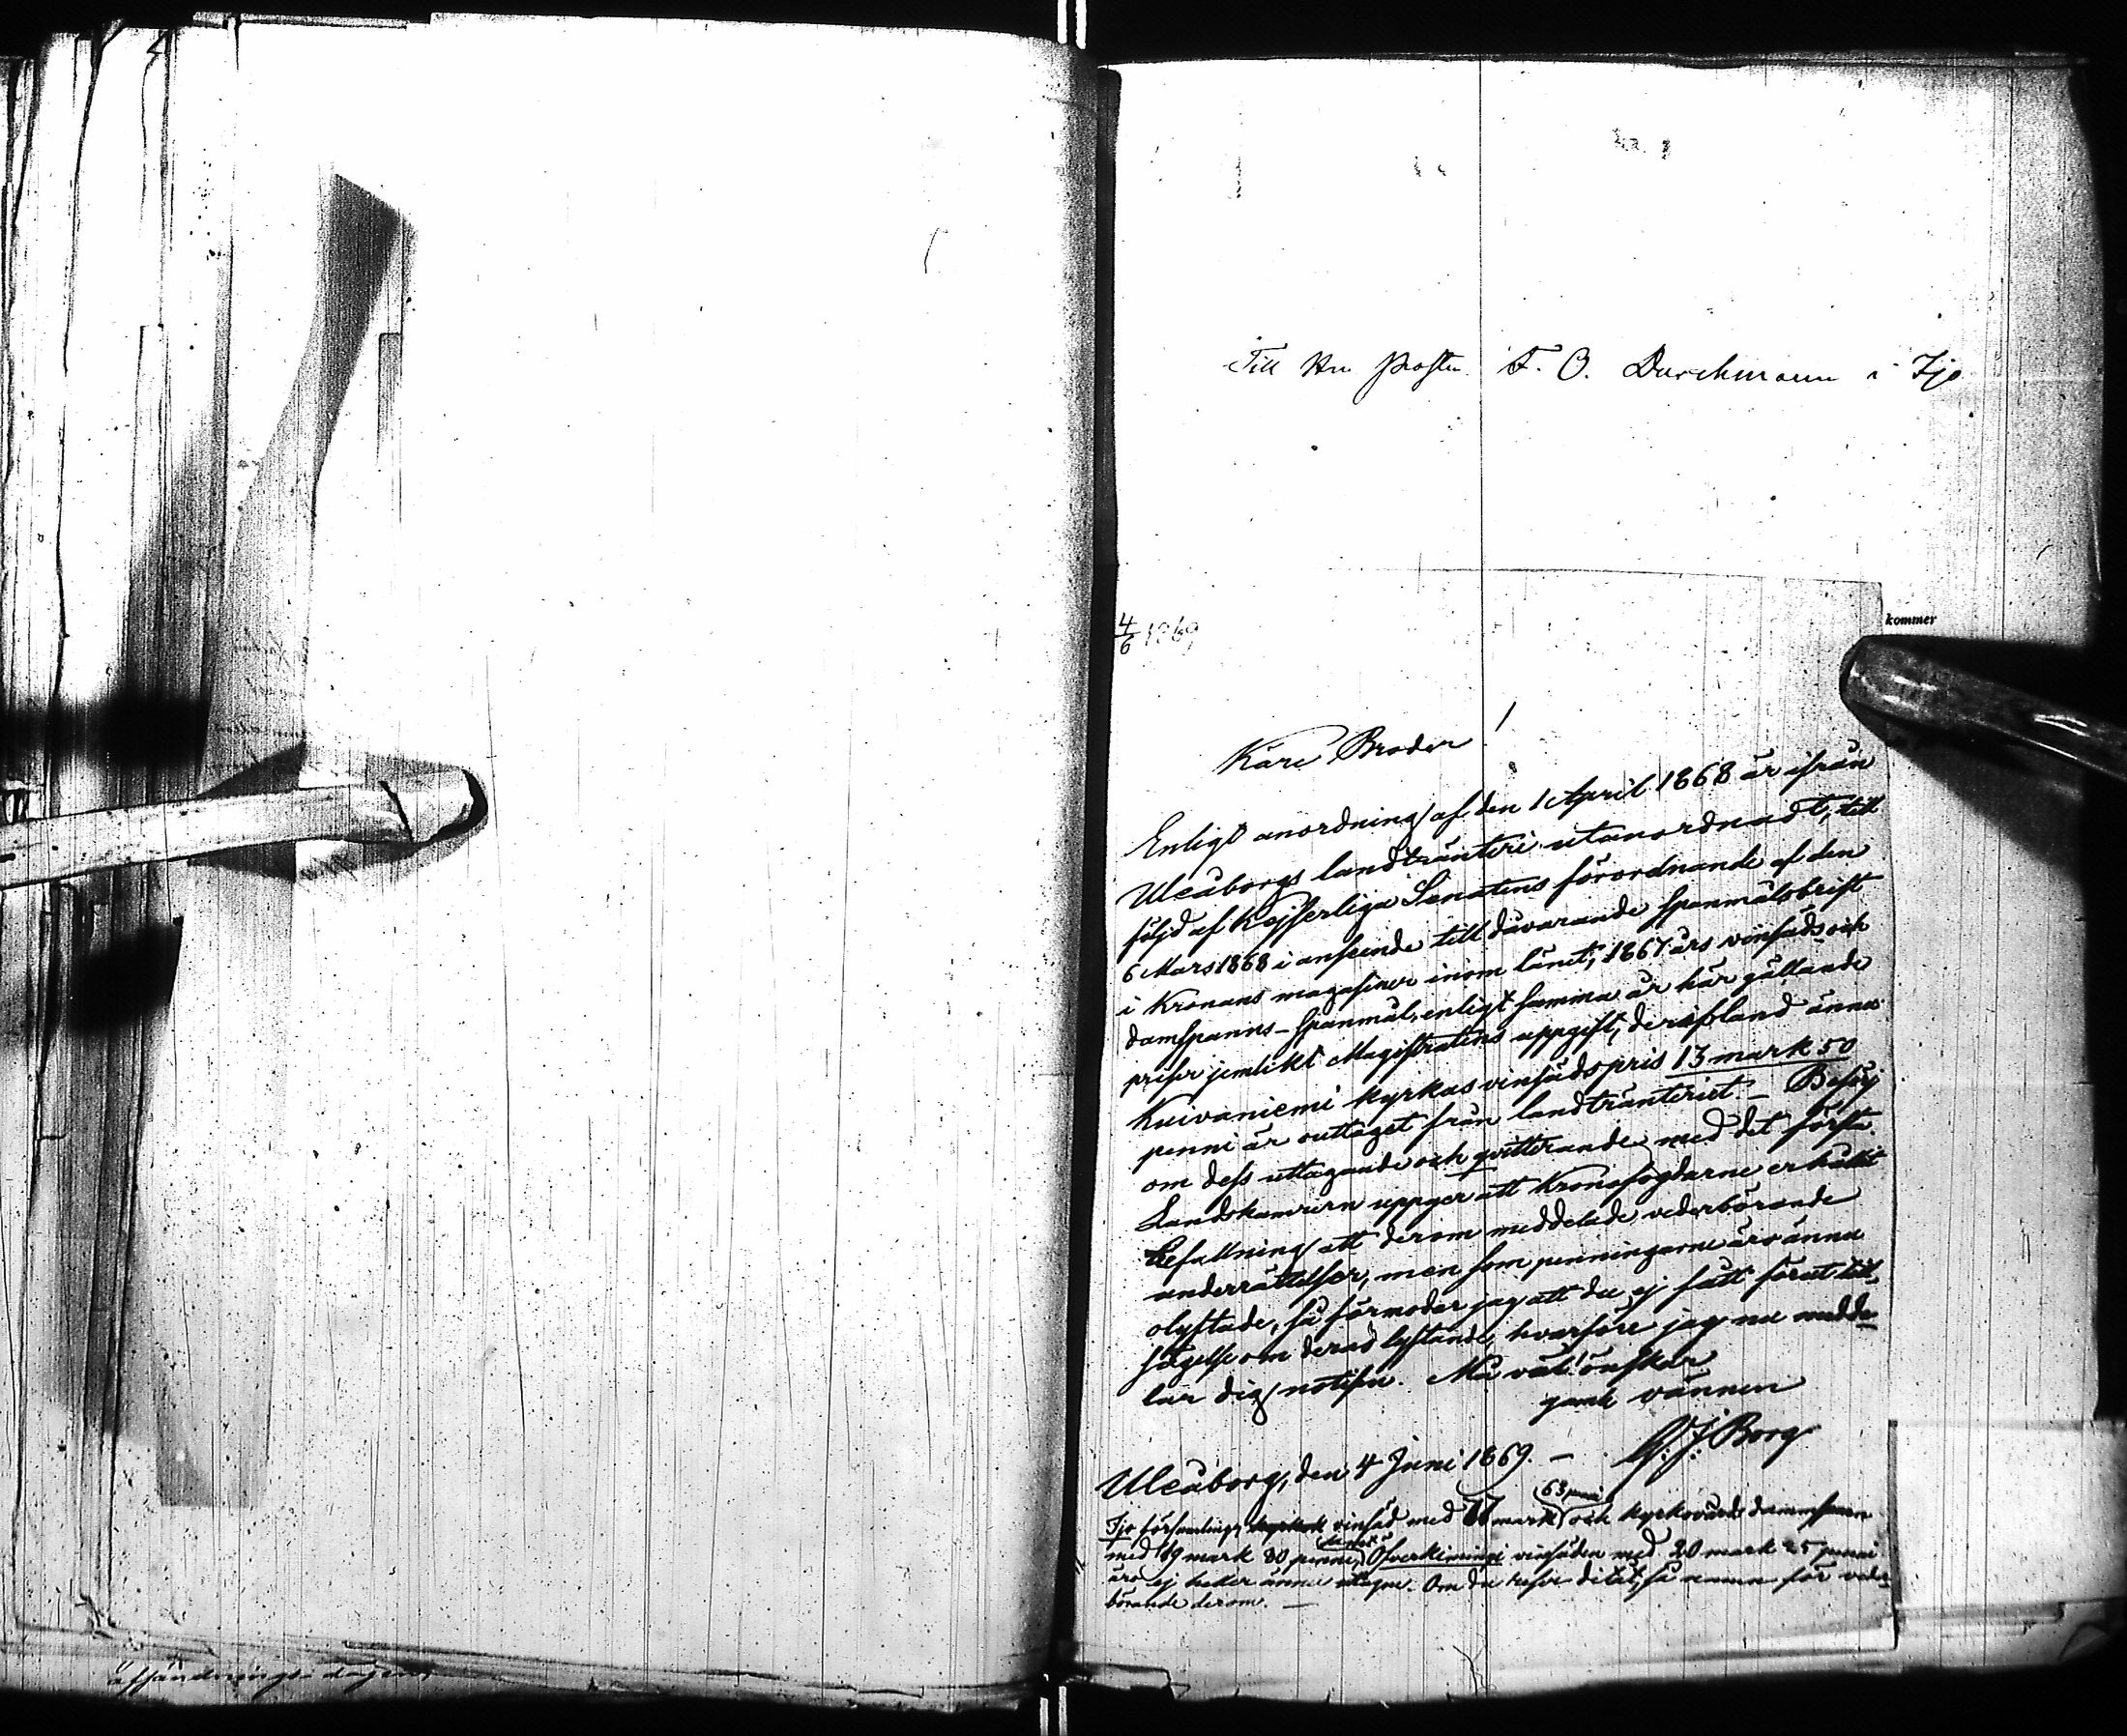 Till Hr Prosten F. O. Durchmann i Ijo
kommer
4/6 1869
Käre Broder!
Enligt anordning af den 1 April 1868 är ifrån
Uleåborgs landtränteri utanordnadt, till
följd af Kejserliga Senatens förordnande af den
6 Mars 1868 i anseende till dåvarande spanmålsbrist
i Kronans magasiner inom länet, 1867 års vinsäds och
domspanns-spanmål, enligt samma år här gällande
priser jemlikt Magistratens uppgift, deribland ännu
Kuivaniemi kyrkas vinsädspris 13 mark 50
penni är outtaget från landtränteriet. – Besörj
om dess uttagande och qvitterande med det första.
Landskamrern uppger att Kronofogdarne erhållit
befallning att derom meddelade vederbörande
underrättelser, men som penningarne äro ännu
olyftade, så förmodar jag att du ej fått förut till
sägelse om deras lyftande, hvarföre jag nu medde
lar dig notisen. Må väl! önskar
gamle vännen
J. Borg
Uleåborg, den 4 Juni 1869. –
63 penni
Ijo församlings vinsäd med mark och kyrkovärds
med 19 mark 80 penni, Öfverkiminge vinsäden med 20 mark 25 penni
äro ej heller ännu uttagne. Om du reser ditåt, så nämn för veder
börande derom. –
afsändnings-dagen,